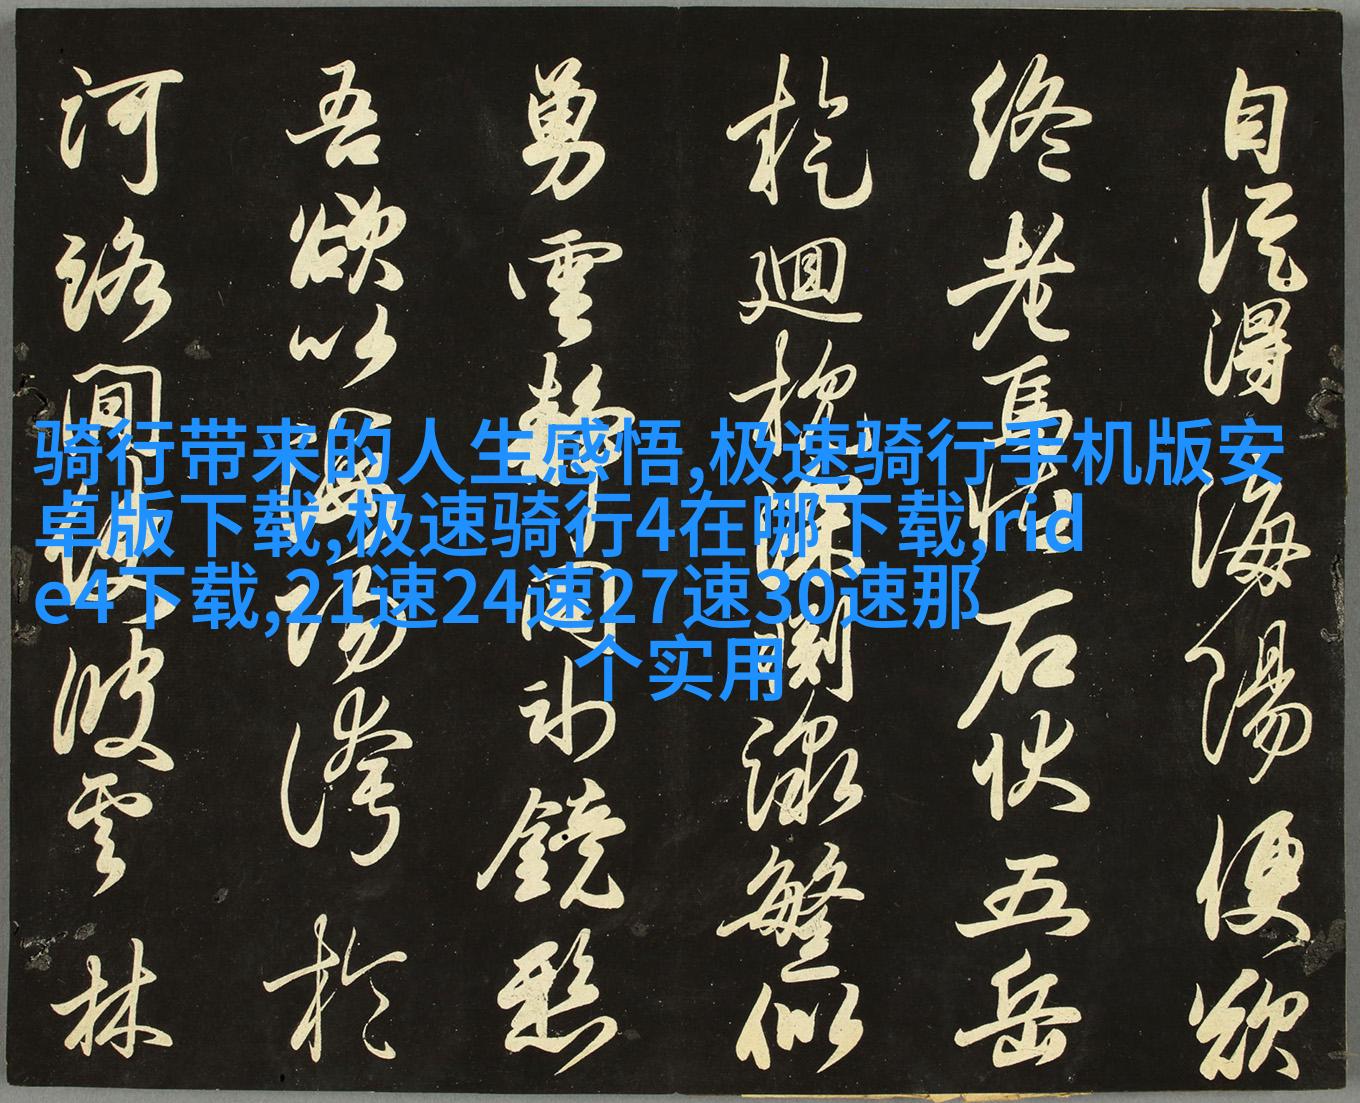 骑行带来的人生感悟,极速骑行手机版安
卓版下载,极速骑行4在哪下载,rid
e4下载,21速24速27速30速那
个实用
自從得海陽便欲
終老馬怪石伏五岳
廻深繁似
勇雲靜水鏡
吾欲以海陽誇於
河路間波雲林